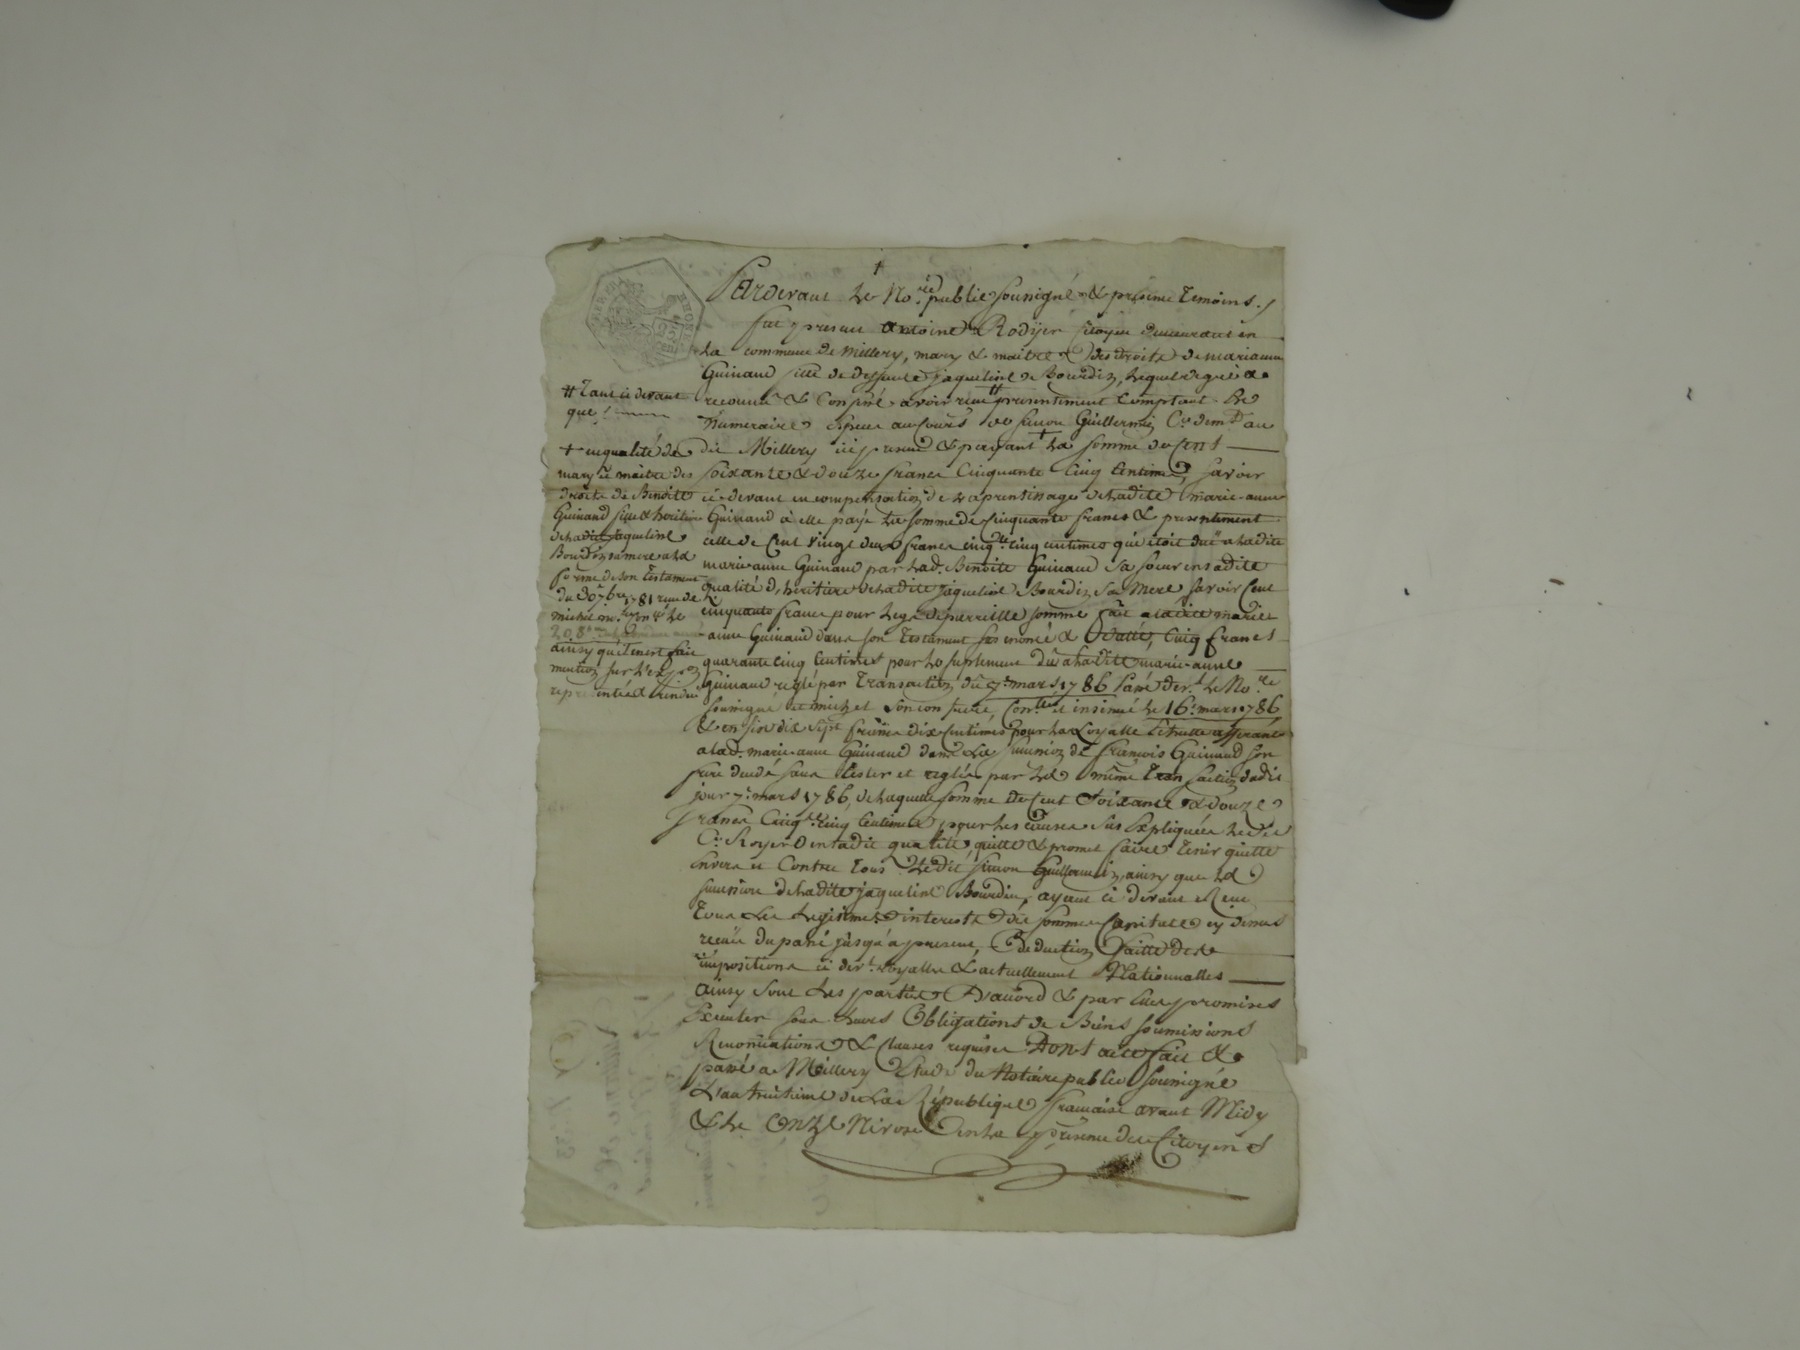 Pardevant Le No.re public soussigné & présence Temoins./
fut present antoine Rodyer Citoyen demeurant en
La commune de Millery, mary & maitre des droits de marianne
Guinand fille de deffunte jaqueline Bourdin, Lequel de gré a
reconnu & Confessé avoir reçu # presentement Comptant
Numeraire espece au Cours de simon Guillermin C.en dem.t au
dit Millery ici present & payant + La somme de Cent
soixante & douze francs Cinquante Cinq Centimes, savoir
ci-devant en compensation de L'aprentissage de Ladite marie-anne
Guinand à elle payé La somme de Cinquante francs & presentement
celle de Cent vingt deux francs cinq.te cinq centimes qui étoit due a Ladite
marie-anne Guinand par Lad. Benoite Guinand Sa soeur en sadite
qualité d'heritiere de Ladite jaqueline Bourdin Sa Mere savoir Cent
cinquante francs pour Legs de pareille somme fait a Ladite marie
anne Guinand dans son Testament sus enoncé & datté, Cinq francs
quarante cinq Centimes pour Le suplement Dû a Ladite marie-anne
Guinand reglé par Transaction du 7. mars 1786 Passé dev.t Le No.re
soussigné et michel Son confrere, Con.llé et insinué Le 16. mars 1786
& enfin dix sept francs dix Centimes pour La Loyalle Echutte afférante
a Lad. marie-anne Guinand dans La succession de françois Guinand son
frere decedé sans tester et reglée par La même Transaction dudit
jour 7. mars 1786, de Laquelle somme De Cent Soixante & douze
francs Cinq.te Cinq Centimes pour Les causes sus Expliquées Ledit
C.en Royer en sadite qualité, quitte & promet faire Tenir quitte
envers et Contre tous Ledit simon Guillermin, ainsy que La
succession de Ladite jaqueline Bourdin, ayant ci devant Reçu
Tous Les Legitimes interets de somme Capitale cy dessus
reçue du passé jusqu'a present, Deduction faitte des
impositions ci dev.t Royalles & actuellement Nationnalles
Ainsy Sont Les parties D'accord & par Elles promises
Executer sous Leurs Obligations de Biens soumissions
Renonciations & Clauses requises Dont acte fait &
passé a Millery Etude du Notaire public soussigné
L'an huitieme de La République francaise avant Midy
& Le Onze Nivose En La presence des Citoyens
# Tant ci devant
que
+ en qualité de
mary & maitre des
droits de Benoite
Guinand fille & heritiere
de Ladite jaqueline
Bourdin sa mere a La
forme de son Testament
du 30 7bre 1781 reçu de
michel
ainsy qu'il en est fait
mention sur L'exp.on
representée & rendue